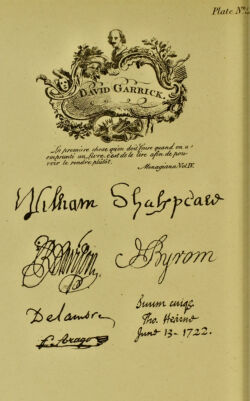 Plate No.
DAVID GARRICK.
La premiere chose qu'on doit faire quand on a
emprunté un livre, c'est de le lire afin de pou-
voir le rendre plûtôt.
Menagiana Vol. IV.
William Shakspeare
J Byrom
Delambre
Suum cuiq;
Tho. Hearne
June 13- 1722.
F. Arago